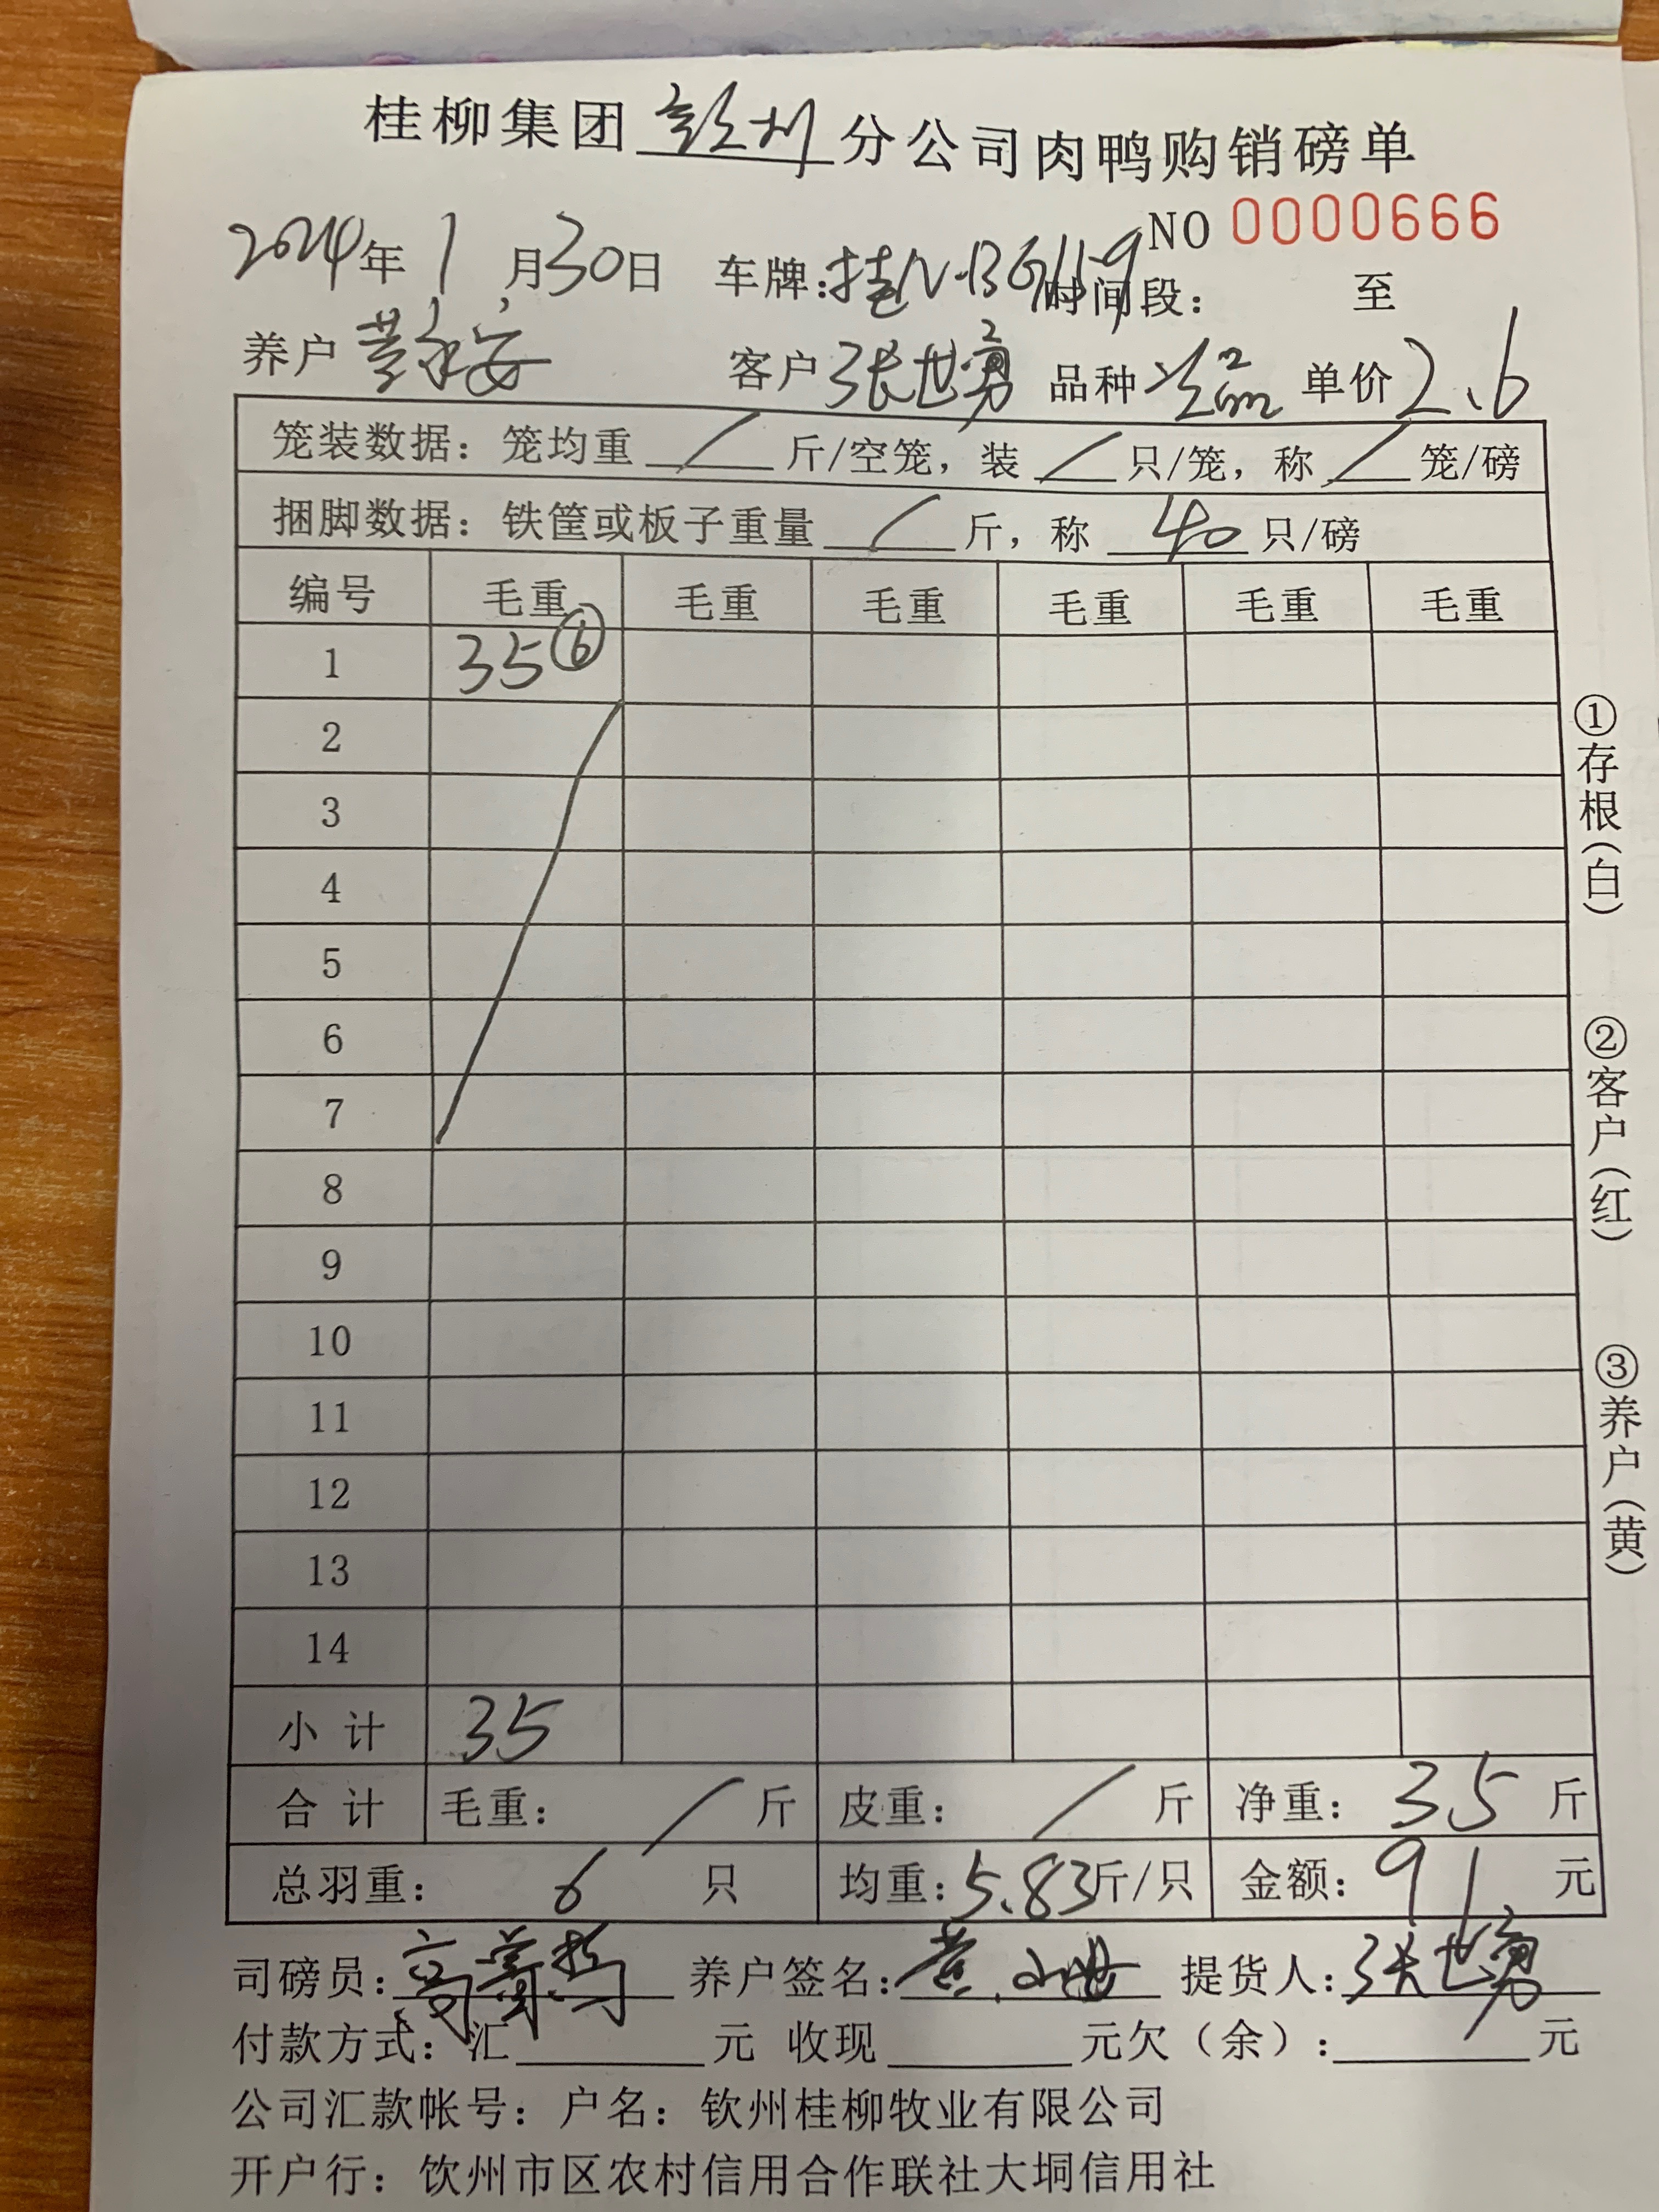 桂柳集团 分公司肉鸭购销磅单
NO 0000666
2024年 1 月30日 车牌:桂N·BG1159 时间段: 至
养户 黄永安 客户 张世勇 品种 次品 单价 2.6
笼装数据: 笼均重 / 斤/空笼, 装 / 只/笼, 称 / 笼/磅
捆脚数据: 铁筐或板子重量 / 斤, 称 40 只/磅
编号 毛重 毛重 毛重 毛重 毛重 毛重
1 35 ⑥
2
3
4
5
6
7
8
9
10
11
12
13
14
小 计 35
合 计 毛重: / 斤 皮重: / 斤 净重: 35 斤
总羽重: 6 只 均重: 5.83斤/只 金额: 91 元
司磅员: 养户签名: 黄 提货人: 张世勇
付款方式: 汇 元 收现 元欠(余): 元
公司汇款帐号: 户名: 钦州桂柳牧业有限公司
开户行: 钦州市区农村信用合作联社大垌信用社
①存根(白)
②客户(红)
③养户(黄)